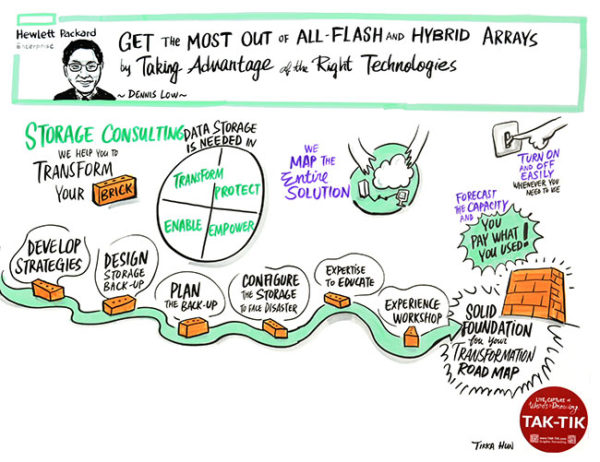 Hewlett Packard
Enterprise
GET THE MOST OUT OF ALL-FLASH AND HYBRID ARRAYS
by Taking Advantage of the Right Technologies
~ DENNIS LOW ~
STORAGE CONSULTING
WE HELP YOU TO
TRANSFORM
YOUR BRICK
DATA STORAGE
IS NEEDED IN
TRANSFORM
PROTECT
ENABLE
EMPOWER
WE
MAP THE
Entire
SOLUTION
TURN ON
AND OFF
EASILY
WHENEVER YOU
NEED TO USE
FORECAST
THE CAPACITY
AND
YOU
PAY WHAT
YOU USED!
DEVELOP
STRATEGIES
DESIGN
STORAGE
BACK-UP
PLAN
THE BACK-UP
CONFIGURE
THE STORAGE
TO FACE DISASTER
EXPERTISE
TO EDUCATE
EXPERIENCE
WORKSHOP
SOLID
FOUNDATION
for your
TRANSFORMATION
ROAD MAP
LIVE CAPTURE of
Words & Drawing
TAK-TIK
www.TAK-TIK.com
TIKKA HUN